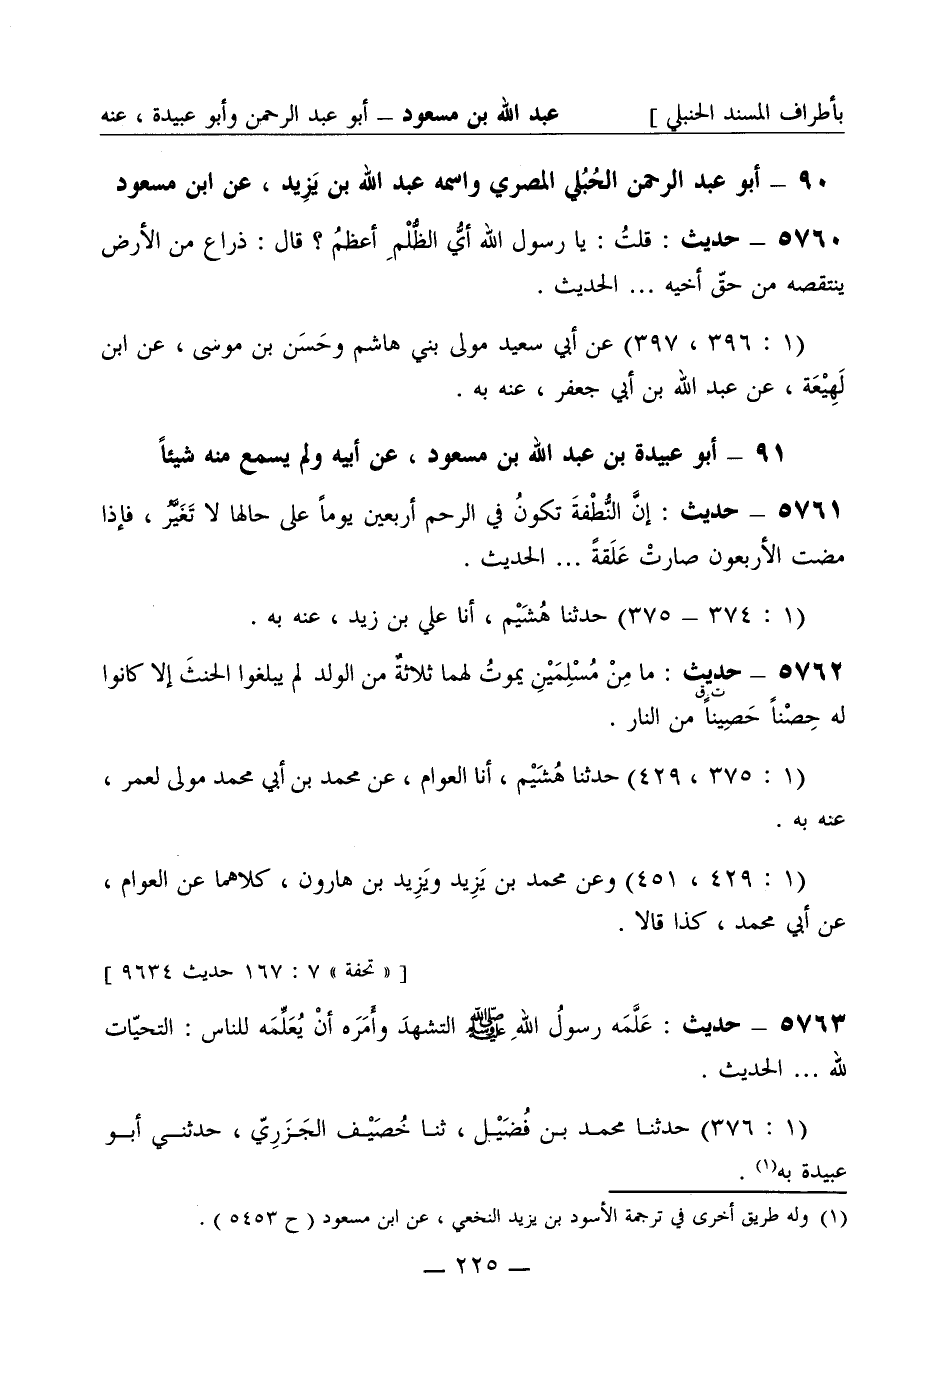 بأطراف المسند الحنبلي ] عبد الله بن مسعود – أبو عبد الرحمن وأبو عبيدة ، عنه
٩٠ – أبو عبد الرحمن الحُبُلي المصري واسمه عبد الله بن يَزِيد ، عن ابن مسعود
٥٧٦٠ – حديث : قلتُ : يا رسول الله أيُّ الظُّلْمِ أعظمُ ؟ قال : ذراع من الأرض
ينتقصه من حقّ أخيه ... الحديث .
(١ : ٣٩٦ ، ٣٩٧) عن أبي سعيد مولى بني هاشم وحَسَن بن موسى ، عن ابن
لَهِيْعَة ، عن عبد الله بن أبي جعفر ، عنه به .
٩١ – أبو عبيدة بن عبد الله بن مسعود ، عن أبيه ولم يسمع منه شيئاً
٥٧٦١ – حديث : إنَّ النُّطْفةَ تكونُ في الرحم أربعين يوماً على حالها لا تَغَيَّر ، فإذا
مضت الأربعون صارتْ عَلَقةً ... الحديث .
(١ : ٣٧٤ – ٣٧٥) حدثنا هُشَيْم ، أنا علي بن زيد ، عنه به .
٥٧٦٢ – حديث : ما مِنْ مُسْلِمَيْنِ يموتُ لهما ثلاثةٌ من الولد لم يبلغوا الحنثَ إلا كانوا
ت ق
له حِصْناً حَصِيناً من النار .
(١ : ٣٧٥ ، ٤٢٩) حدثنا هُشَيْم ، أنا العوام ، عن محمد بن أبي محمد مولى لعمر ،
عنه به .
(١ : ٤٢٩ ، ٤٥١) وعن محمد بن يَزِيد ويَزِيد بن هارون ، كلاهما عن العوام ،
عن أبي محمد ، كذا قالا .
[ « تحفة » ٧ : ١٦٧ حديث ٩٦٣٤ ]
٥٧٦٣ – حديث : عَلَّمَه رسولُ اللهِ ﷺ التشهدَ وأَمَرَه أنْ يُعَلِّمَه للناس : التحيّات
لله ... الحديث .
(١ : ٣٧٦) حدثنا محمد بن فُضَيْل ، ثنا خُصَيْف الجَزَرِيّ ، حدثني أبو
عبيدة به(١) .
(١) وله طريق أخرى في ترجمة الأسود بن يزيد النخعي ، عن ابن مسعود ( ح ٥٤٥٣ ) .
– ٢٢٥ –